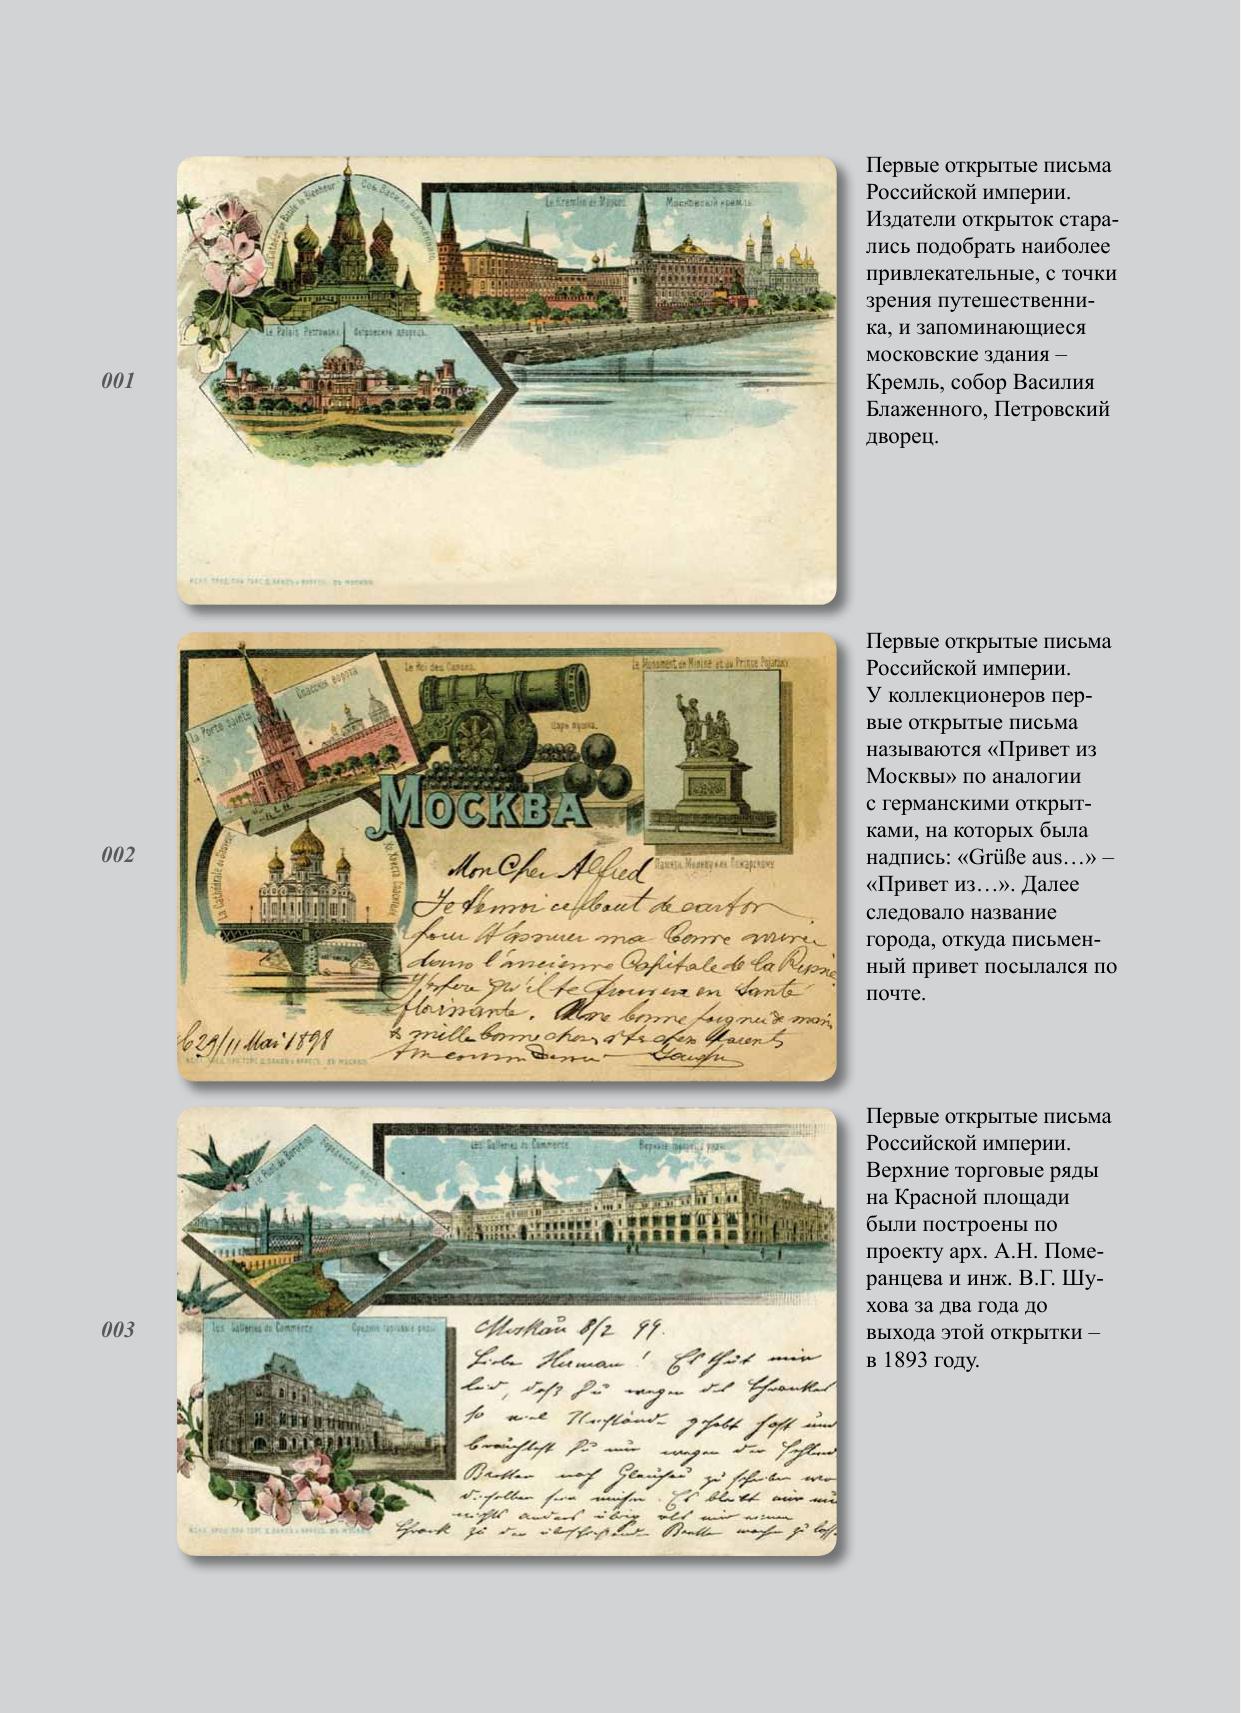 001
La Cathédrale de Basile le Bienheureux
Соб. Василія Блаженнаго.
Le Kremlin de Moscou.
Московскій кремль.
Le Palais Petrowsky.
Петровскій дворецъ.
ВЪ МОСКВѢ.
Первые открытые письма
Российской империи.
Издатели открыток стара-
лись подобрать наиболее
привлекательные, с точки
зрения путешественни-
ка, и запоминающиеся
московские здания –
Кремль, собор Василия
Блаженного, Петровский
дворец.
002
La Porte Sainte
Спасскія ворота
Le Roi des Canons.
Царь пушка.
Le Monument de Minine et du Prince Pojarsky
МОСКВА
La Cathédrale du Sauveur
Mon Cher Alfred
Je t'envoi ce bout de carton
pour t'assurer ma bonne
dans l'ancienne Capitale de la Russie
J'espère qu'il te trouvera en Santé
florissante. Une bonne poignée de main
& mille bonne choses à tes chers Parents
29/11 Mai 1898
ВЪ МОСКВѢ.
Первые открытые письма
Российской империи.
У коллекционеров пер-
вые открытые письма
называются «Привет из
Москвы» по аналогии
с германскими открыт-
ками, на которых была
надпись: «Grüße aus…» –
«Привет из…». Далее
следовало название
города, откуда письмен-
ный привет посылался по
почте.
003
Le Pont de Borodino
Бородинскій мостъ
Les Galleries du Commerce.
Верхніе торговые ряды.
Les Galleries du Commerce
Средніе торговые ряды
Moskau 8/2 99.
Liebe Herman! Es thut mir
leid, daß Du wegen des Schrankes
so viel Umstände gehabt hast und
Первые открытые письма
Российской империи.
Верхние торговые ряды
на Красной площади
были построены по
проекту арх. А.Н. Поме-
ранцева и инж. В.Г. Шу-
хова за два года до
выхода этой открытки –
в 1893 году.